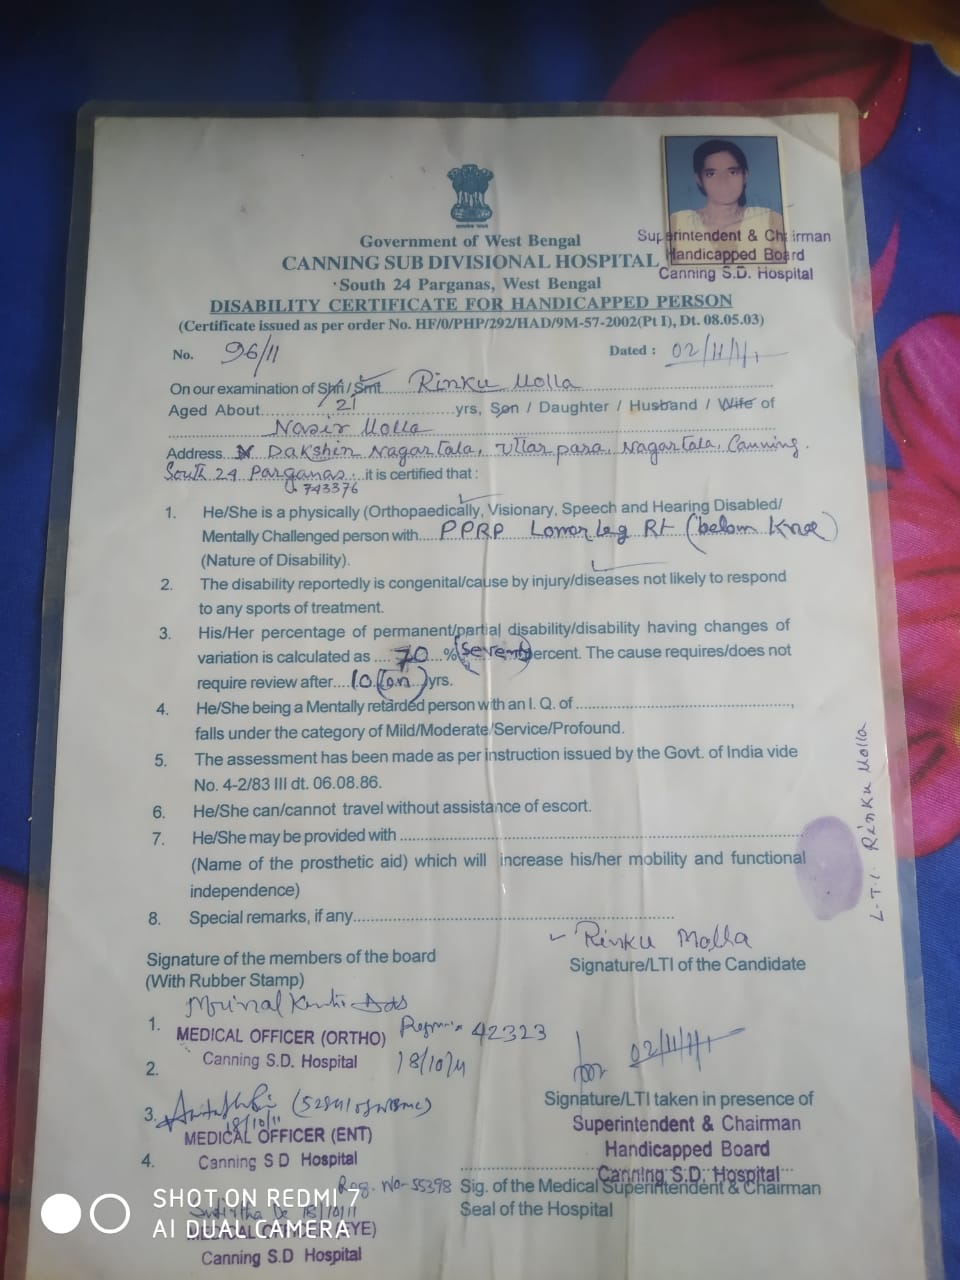 Government of West Bengal
CANNING SUB DIVISIONAL HOSPITAL
South 24 Parganas, West Bengal
DISABILITY CERTIFICATE FOR HANDICAPPED PERSON
(Certificate issued as per order No. HF/0/PHP/292/HAD/9M-57-2002(Pt I), Dt. 08.05.03)
Superintendent & Chairman
Handicapped Board
Canning S.D. Hospital
No. 96/11 Dated : 02/11/11
On our examination of Shri / Smt Rinku Molla
Aged About 21 yrs, Son / Daughter / Husband / Wife of
Nasir Molla
Address Dakshin Nagartala, Uttar para, Nagartala, Canning.
South 24 Parganas. it is certified that :
743376
1. He/She is a physically (Orthopaedically, Visionary, Speech and Hearing Disabled/
Mentally Challenged person with PPRP Lower leg Rt (below Knee)
(Nature of Disability).
2. The disability reportedly is congenital/cause by injury/diseases not likely to respond
to any sports of treatment.
3. His/Her percentage of permanent/partial disability/disability having changes of
variation is calculated as .... 70 % (Seventy) percent. The cause requires/does not
require review after.... 10 yrs.
4. He/She being a Mentally retarded person with an I. Q. of
falls under the category of Mild/Moderate/Service/Profound.
5. The assessment has been made as per instruction issued by the Govt. of India vide
No. 4-2/83 III dt. 06.08.86.
6. He/She can/cannot travel without assistance of escort.
7. He/She may be provided with
(Name of the prosthetic aid) which will increase his/her mobility and functional
independence)
8. Special remarks, if any
L.T.I. Rinku Molla
Rinku Molla
Signature/LTI of the Candidate
Signature of the members of the board
(With Rubber Stamp)
Mrinal Kanti Das
1. MEDICAL OFFICER (ORTHO) 42323
Canning S.D. Hospital 18/10/11
2.
3.
18/10/11
MEDICAL OFFICER (ENT)
4. Canning S D Hospital
Reg. No-55398
18/10/11
MEDICAL OFFICER (EYE)
Canning S.D Hospital
for 02/11/11
Signature/LTI taken in presence of
Superintendent & Chairman
Handicapped Board
Canning S.D. Hospital
Sig. of the Medical Superintendent & Chairman
Seal of the Hospital
SHOT ON REDMI 7
AI DUAL CAMERA